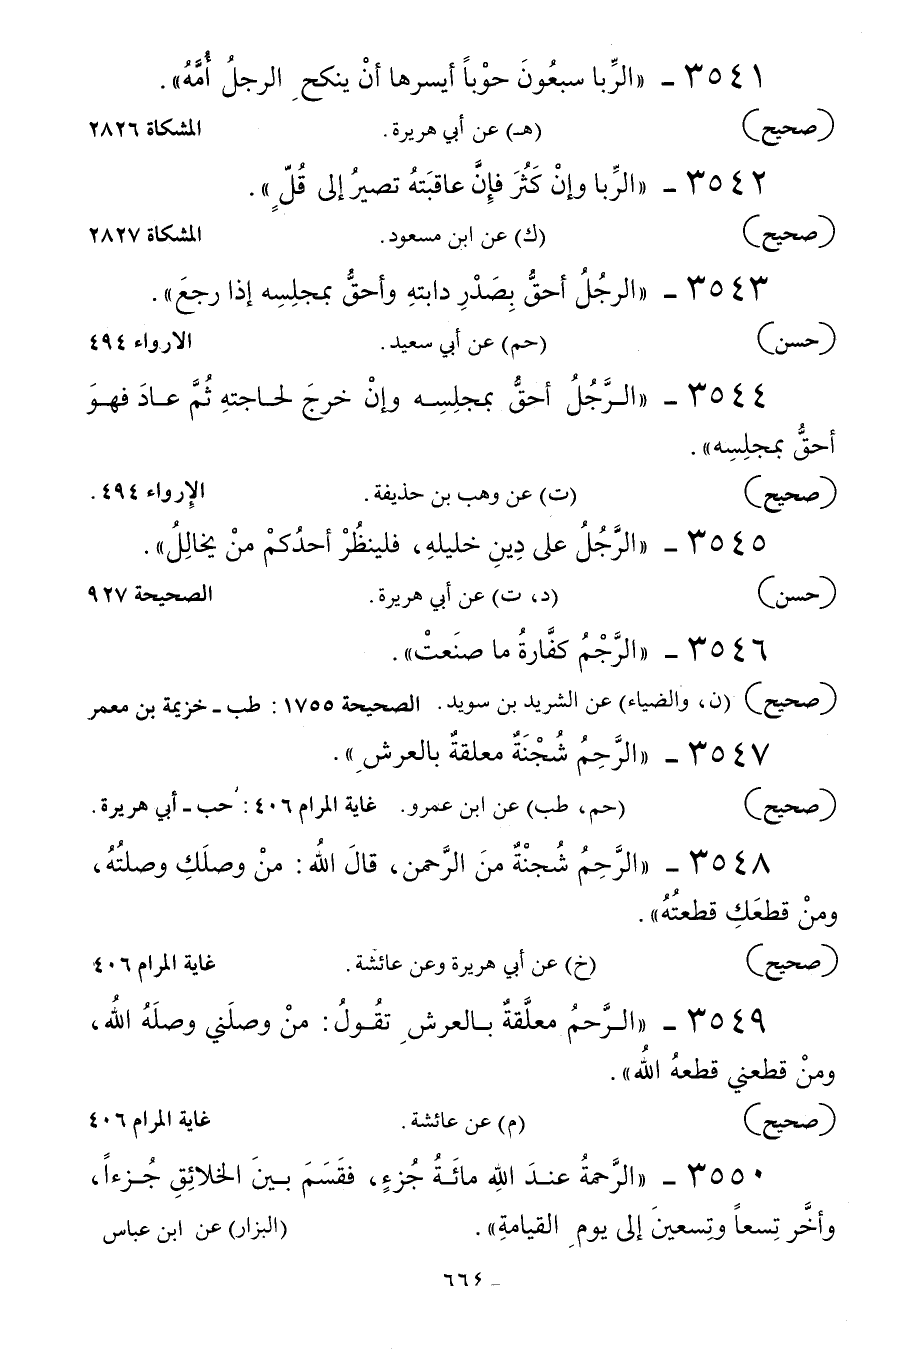 ٣٥٤١ - «الرِّبا سبعُونَ حوْباً أيسرها أنْ ينكحِ الرجلُ أُمَّهُ».
(صحيح) (هـ) عن أبي هريرة. المشكاة ٢٨٢٦
٣٥٤٢ - «الرِّبا وإنْ كَثُرَ فإِنَّ عاقبَتهُ تصيرُ إلى قُلٍّ».
(صحيح) (ك) عن ابن مسعود. المشكاة ٢٨٢٧
٣٥٤٣ - «الرجُلُ أحقُّ بِصَدْرِ دابتهِ وأحقُّ بمجلِسِه إذا رجعَ».
(حسن) (حم) عن أبي سعيد. الارواء ٤٩٤
٣٥٤٤ - «الرَّجُلُ أحقُّ بمجلِسِه وإنْ خرجَ لحاجتهِ ثُمَّ عادَ فهوَ
أحقُّ بمجلِسِه».
(صحيح) (ت) عن وهب بن حذيفة. الإرواء ٤٩٤.
٣٥٤٥ - «الرَّجُلُ على دِينِ خليلهِ، فلينظُرْ أحدُكمْ منْ يخالِلُ».
(حسن) (د، ت) عن أبي هريرة. الصحيحة ٩٢٧
٣٥٤٦ - «الرَّجْمُ كفَّارةُ ما صنَعتْ».
(صحيح) (ن، والضياء) عن الشريد بن سويد. الصحيحة ١٧٥٥: طب - خزيمة بن معمر
٣٥٤٧ - «الرَّحِمُ شُجْنَةٌ معلقةٌ بالعرشِ».
(صحيح) (حم، طب) عن ابن عمرو. غاية المرام ٤٠٦: حب - أبي هريرة.
٣٥٤٨ - «الرَّحِمُ شُجنْةٌ منَ الرَّحمن، قالَ اللهُ: منْ وصلَكِ وصلتُهُ،
ومنْ قطعَكِ قطعتُهُ».
(صحيح) (خ) عن أبي هريرة وعن عائشة. غاية المرام ٤٠٦
٣٥٤٩ - «الرَّحمُ معلَّقةٌ بالعرشِ تقُولُ: منْ وصلَني وصلَهُ اللهُ،
ومنْ قطعني قطعهُ اللهُ».
(صحيح) (م) عن عائشة. غاية المرام ٤٠٦
٣٥٥٠ - «الرَّحمةُ عندَ اللهِ مائَةُ جُزءٍ، فقَسَمَ بينَ الخلائِقِ جُزءاً،
وأخَّر تِسعاً وتِسعينَ إلى يومِ القيامةِ». (البزار) عن ابن عباس
- ٦٦٤